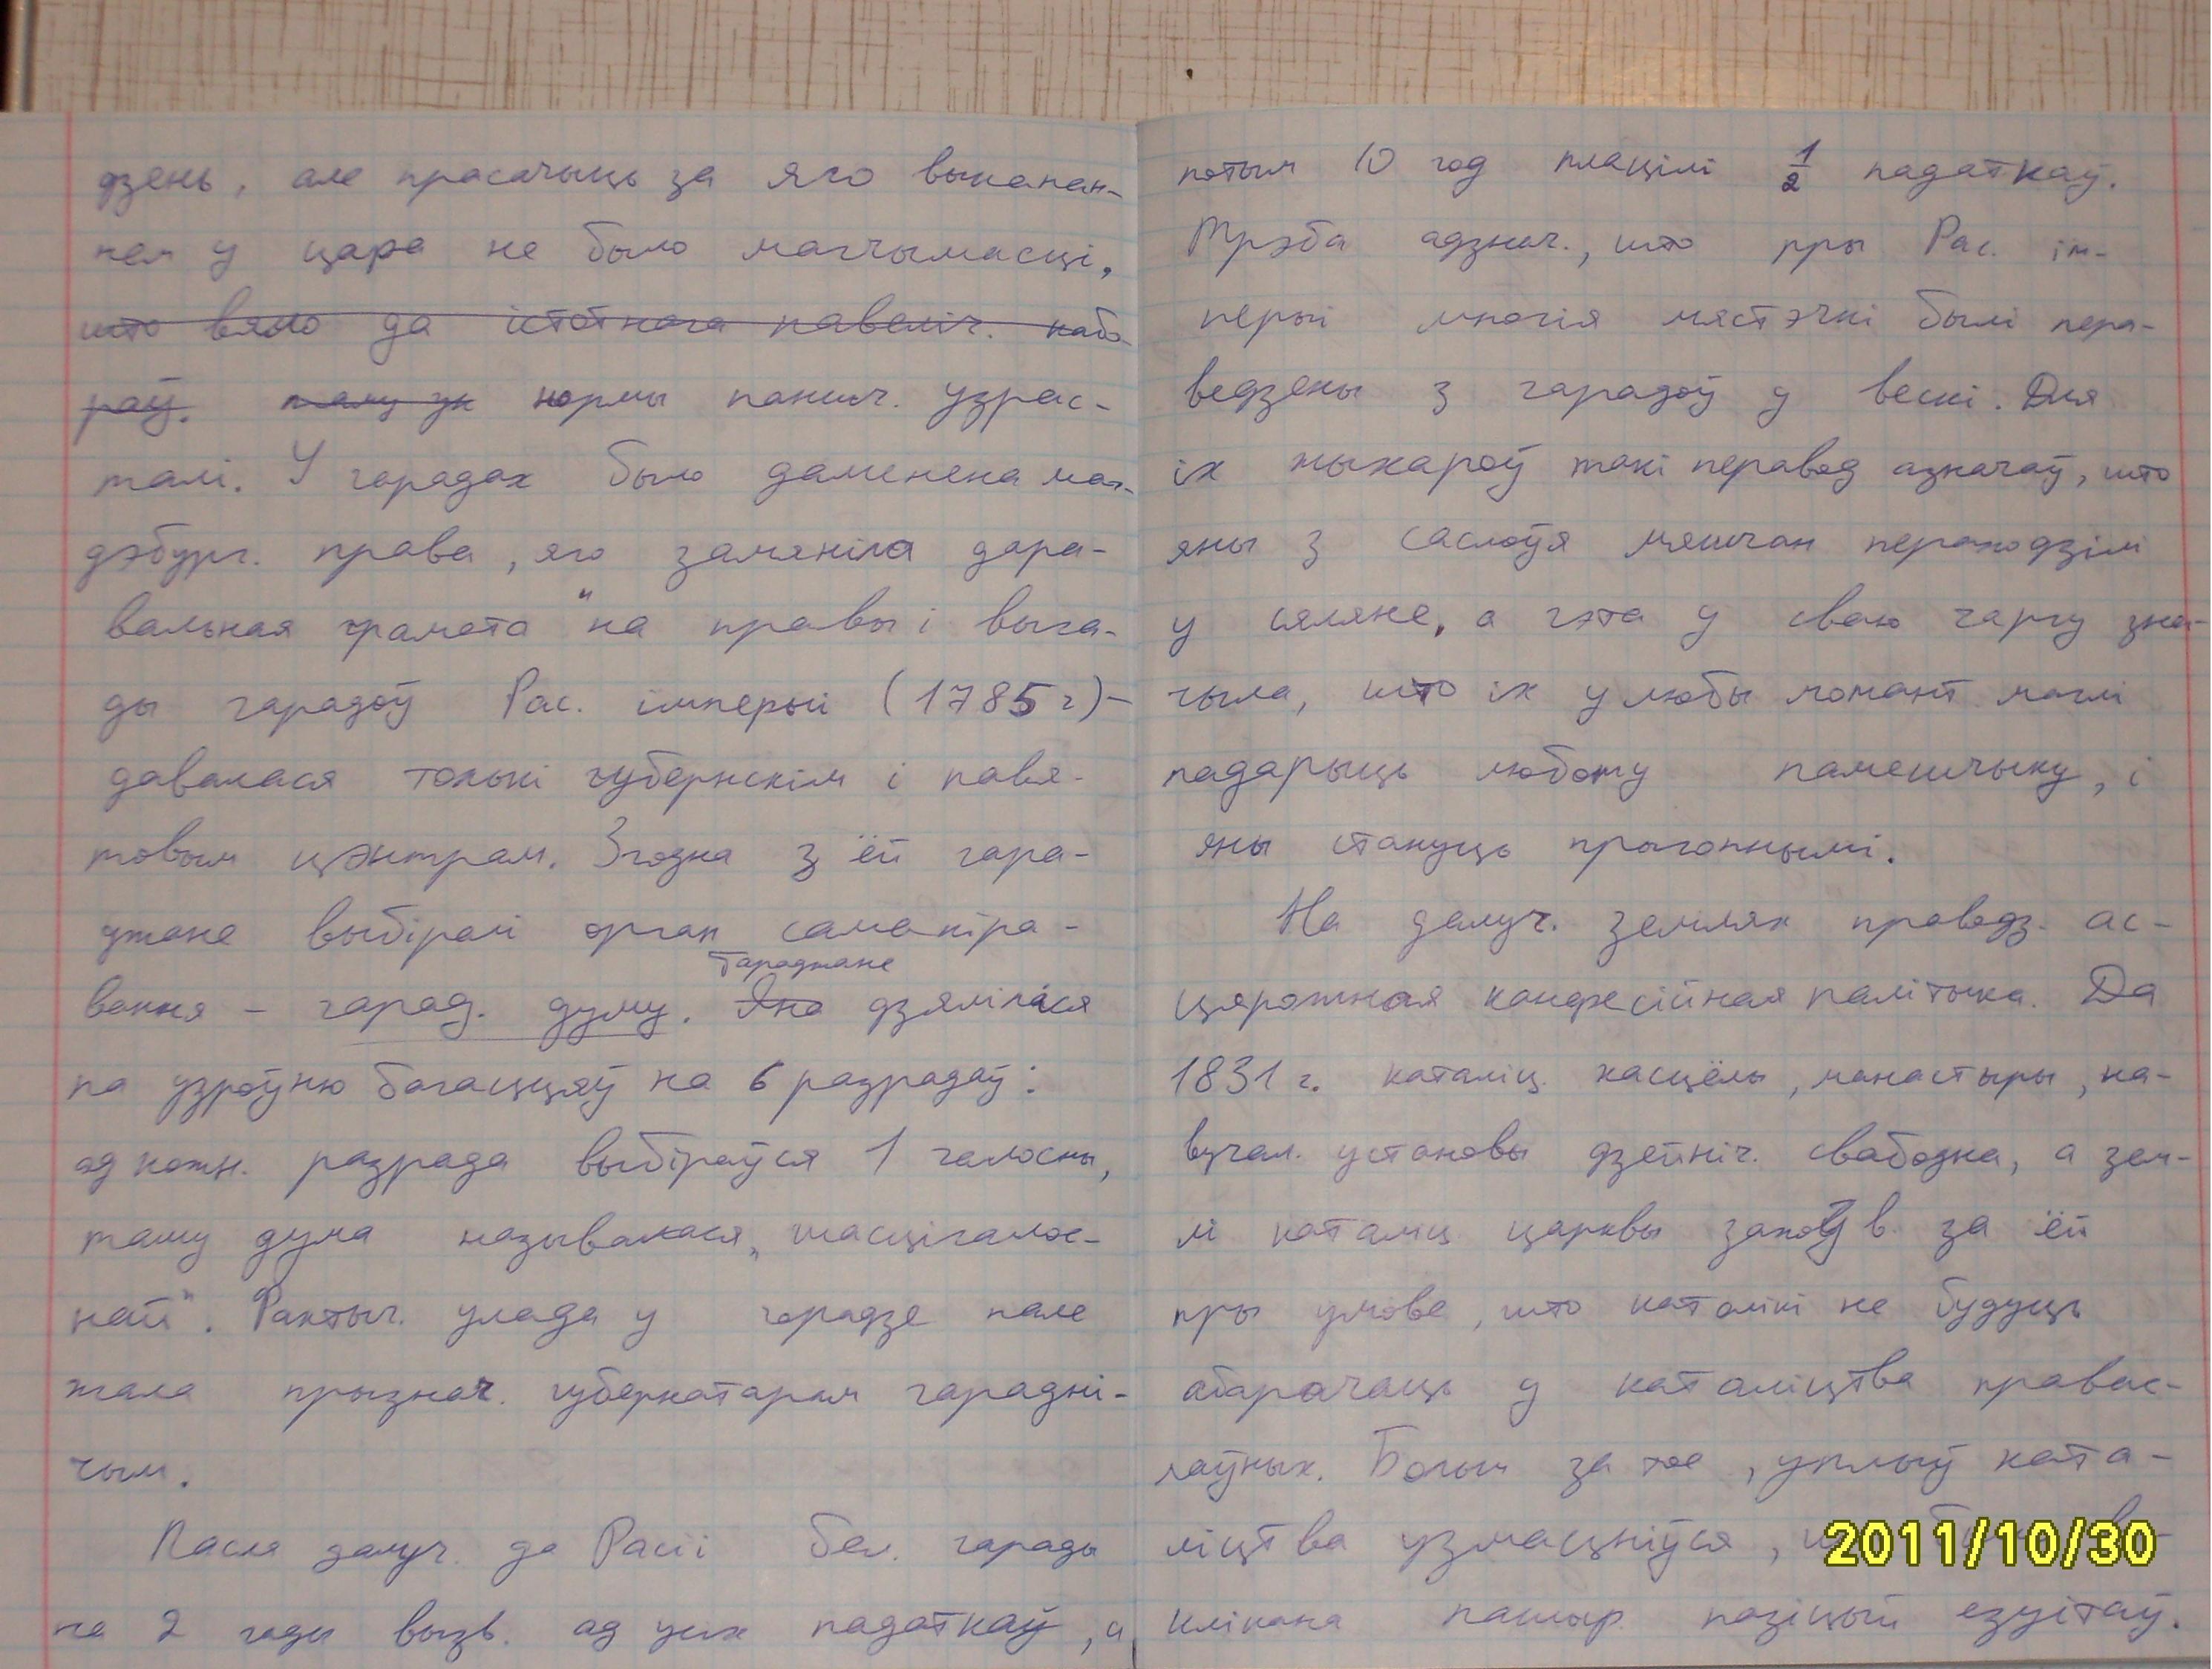 дзень, але прасачыць за яго выканан-
нем у цара не было магчымасці,
што вяло да істотнага павеліч. набо-
раў. таму ук нормы паншч. узрас-
талі. У гарадах было даменена маг-
дэбург. права, яго замяніла дара-
вальная грамата "на правы і выга-
ды гарадоў Рас. імперыі (1785 г) -
давалася толькі губернскім і павя-
товым цэнтрам. Згодна з ёй гара-
джане выбіралі орган самакіра-
Гараджане
вання - гарад. думу. Яна дзяліліся
па узроўню багаццяў на 6 разрадаў:
ад кожн. разрада выбіраўся 1 галосны,
таму дума называлася „шасцігалос-
най". Фактыч. улада у горадзе нале
жала прызнач. губернатарам гарадні-
чым.
Пасля далуч. да Расіі бел. гарады
на 2 гады вызв. ад усіх падаткаў, а
потым 10 год плацілі 1/2 падаткаў.
Трэба адзнач., што пры Рас. ім-
перыі многія мястэчкі былі пера-
ведзены з гарадоў у вескі. Для
іх жыхароў такі перавод азначаў, што
яны з саслоўя мяшчан пераходзілі
у сяляне, а гэта у сваю чаргу зна-
чыла, што іх у любы момант маглі
падарыць любому памешчыку, і
яны стануць прыгоннымі.
На далуч. землях праводз. ас-
цярожная канфесійная палітыка. Да
1831 г. каталіц. касцёлы, манастыры, на-
вучал. установы дзейніч. свабодна, а зем-
лі каталіц. царквы захоўв. за ёй
пры умове, што католікі не будуць
абарачаць у каталіцтва правас-
лаўных. Больш за тое, уплыў ката-
ліцтва узмацніўся,
клікана пашыр. пазіцый езуітаў.
2011/10/30